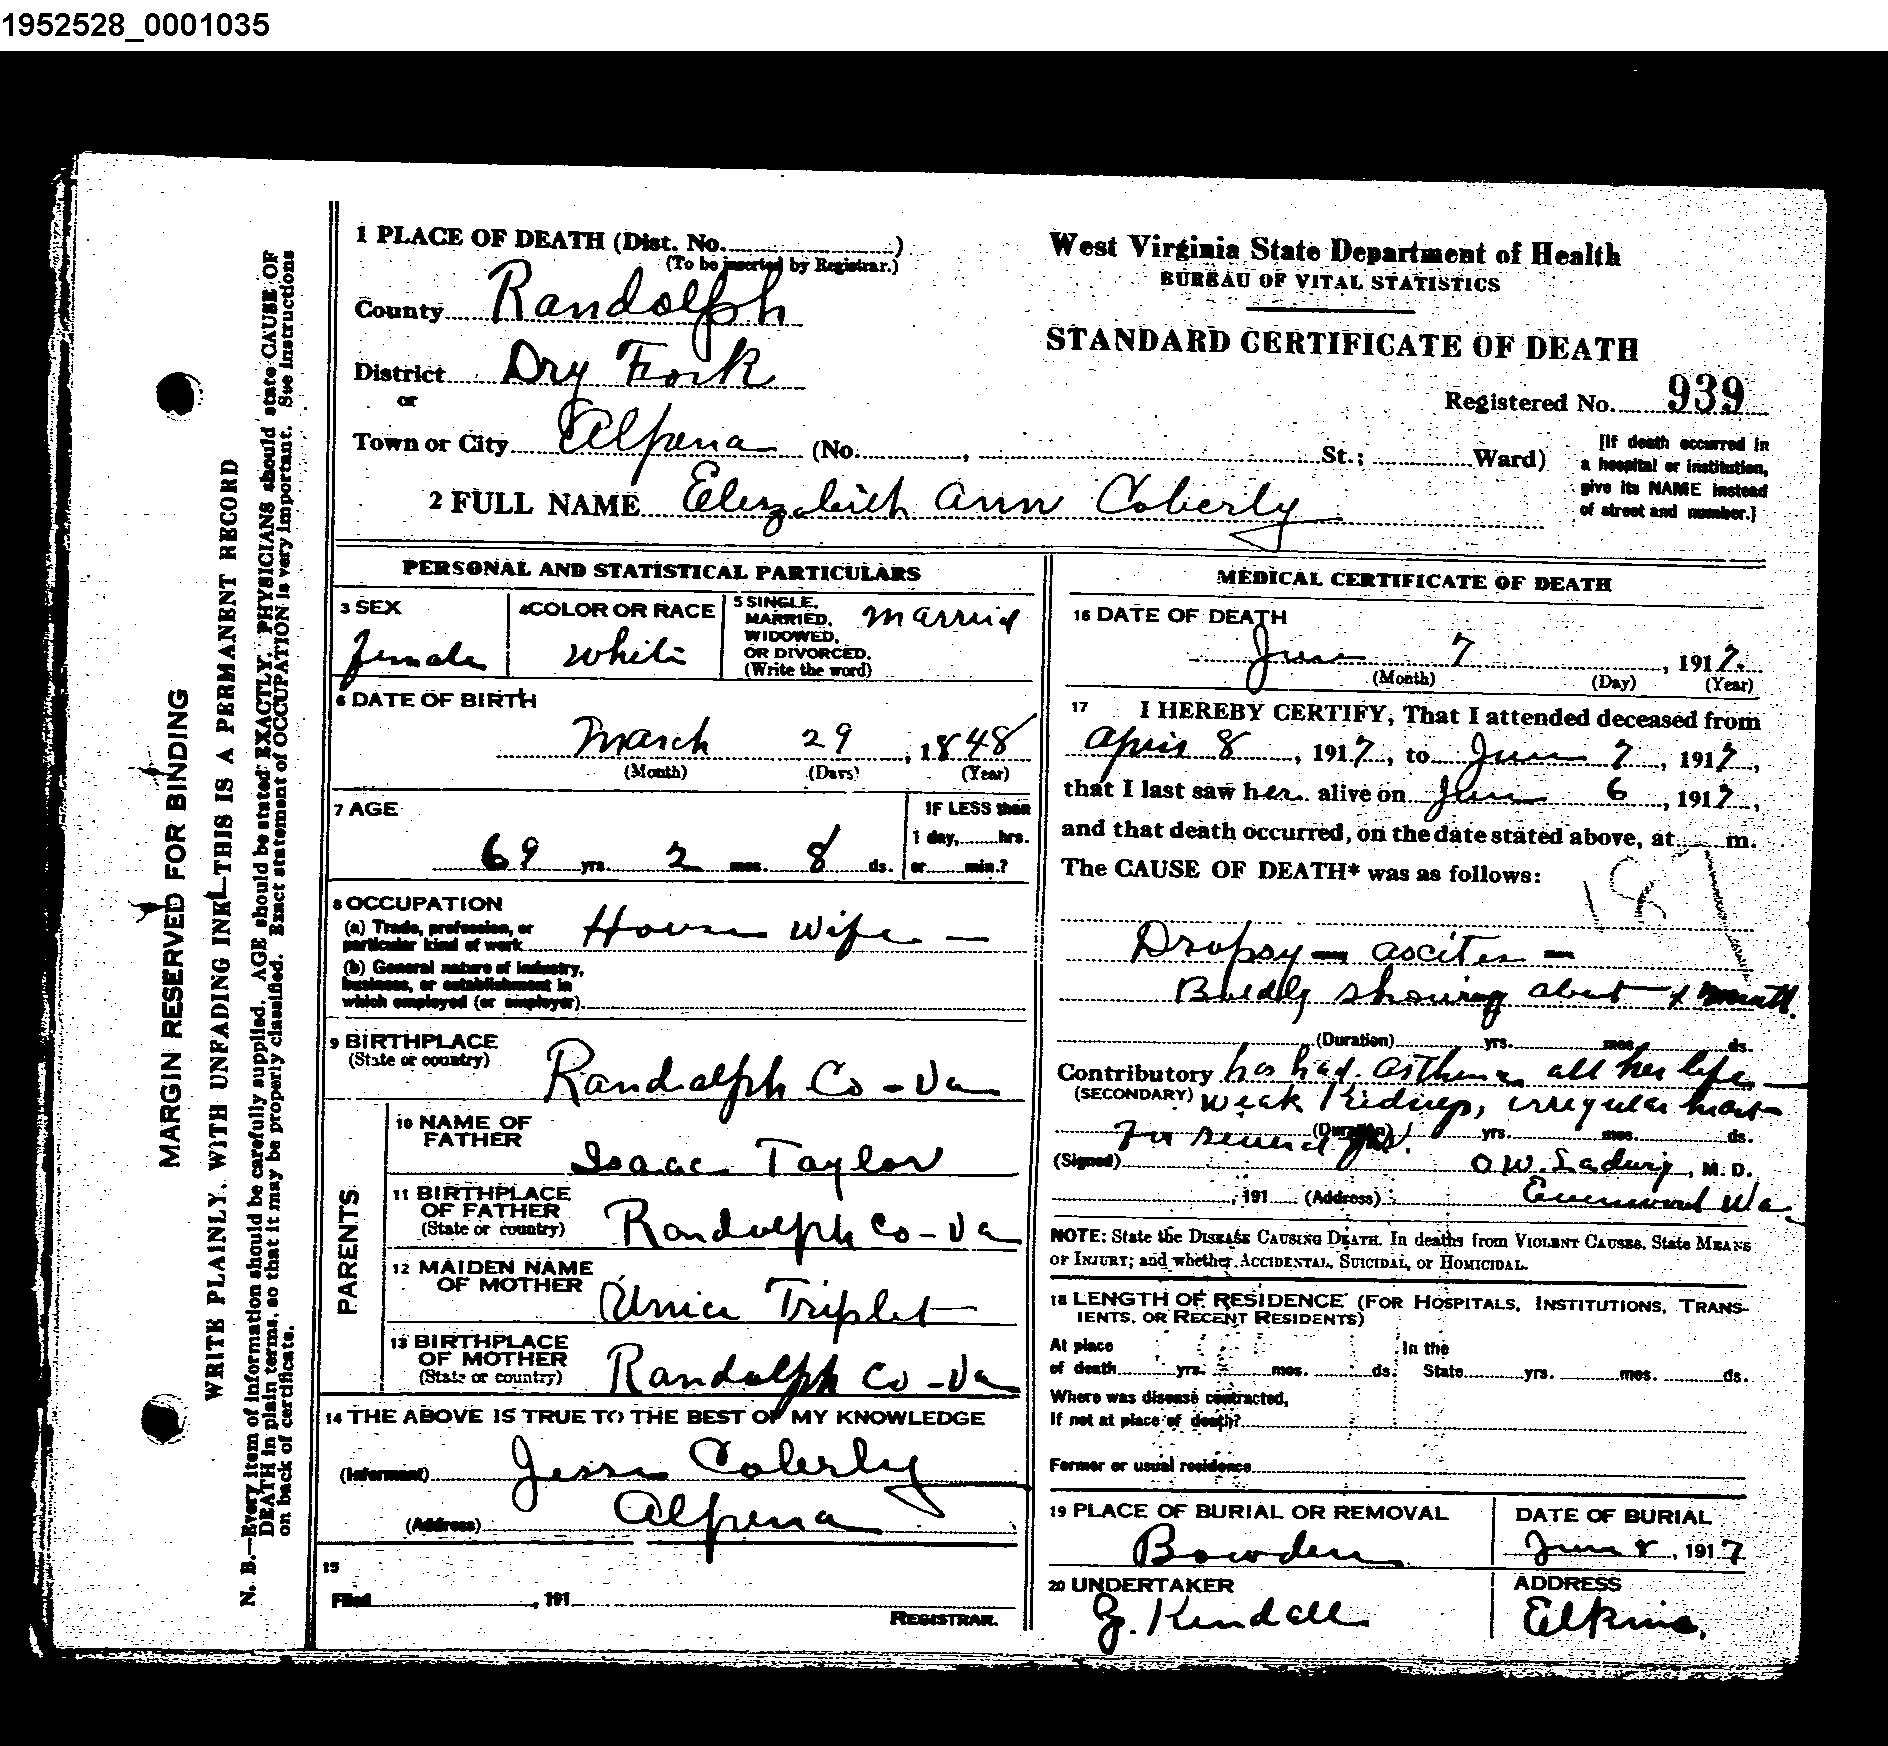 1952528_0001035
1 PLACE OF DEATH (Dist. No.)
(To be inserted by Registrar.)
County Randolph
District Dry Fork
or
Town or City Alpena (No. , St.; Ward)
2 FULL NAME Elizabeth Ann Coberly
West Virginia State Department of Health
BUREAU OF VITAL STATISTICS
STANDARD CERTIFICATE OF DEATH
Registered No. 939
[If death occurred in
a hospital or institution,
give its NAME instead
of street and number.]
MARGIN RESERVED FOR BINDING
WRITE PLAINLY, WITH UNFADING INK—THIS IS A PERMANENT RECORD
N. B.—Every item of information should be carefully supplied. AGE should be stated EXACTLY. PHYSICIANS should state CAUSE OF
DEATH in plain terms, so that it may be properly classified. Exact statement of OCCUPATION is very important. See instructions
on back of certificate.
PERSONAL AND STATISTICAL PARTICULARS
3 SEX
female
4 COLOR OR RACE
white
5 SINGLE,
MARRIED,
WIDOWED,
OR DIVORCED.
(Write the word)
married
6 DATE OF BIRTH
March 29, 1848
(Month) (Days) (Year)
7 AGE
69 yrs. 2 mos. 8 ds.
IF LESS than
1 day, hrs.
or min.?
8 OCCUPATION
(a) Trade, profession, or
particular kind of work House Wife —
(b) General nature of industry,
business, or establishment in
which employed (or employer)
9 BIRTHPLACE
(State or country)
Randolph Co - Va
PARENTS
10 NAME OF
FATHER
Isaac Taylor
11 BIRTHPLACE
OF FATHER
(State or country)
Randolph Co - Va
12 MAIDEN NAME
OF MOTHER
Triplet
13 BIRTHPLACE
OF MOTHER
(State or country)
Randolph Co - Va
14 THE ABOVE IS TRUE TO THE BEST OF MY KNOWLEDGE
(Informant) Jesse Coberly
(Address) Alpena
15
Filed , 191
REGISTRAR.
MEDICAL CERTIFICATE OF DEATH
16 DATE OF DEATH
June 7, 1917.
(Month) (Day) (Year)
17 I HEREBY CERTIFY, That I attended deceased from
April 8, 1917, to June 7, 1917,
that I last saw her alive on June 6, 1917,
and that death occurred, on the date stated above, at m.
The CAUSE OF DEATH* was as follows:
187
Dropsy — ascites —
showing about month.
(Duration) yrs. mos. ds.
Contributory has had asthma all her life —
(SECONDARY) weak Kidneys, irregular heart
for several yrs.
(Duration) yrs. mos. ds.
(Signed) O W. Ladwig, M. D.
, 191 (Address)
NOTE: State the DISEASE CAUSING DEATH. In deaths from VIOLENT CAUSES, State MEANS
OF INJURY; and whether ACCIDENTAL, SUICIDAL, or HOMICIDAL.
18 LENGTH OF RESIDENCE (FOR HOSPITALS, INSTITUTIONS, TRANS-
IENTS, OR RECENT RESIDENTS)
At place In the
of death yrs. mos. ds. State yrs. mos. ds.
Where was disease contracted,
If not at place of death?
Former or usual residence
19 PLACE OF BURIAL OR REMOVAL
Bowden
DATE OF BURIAL
June 8, 1917
20 UNDERTAKER
Kendall
ADDRESS
Elkins.